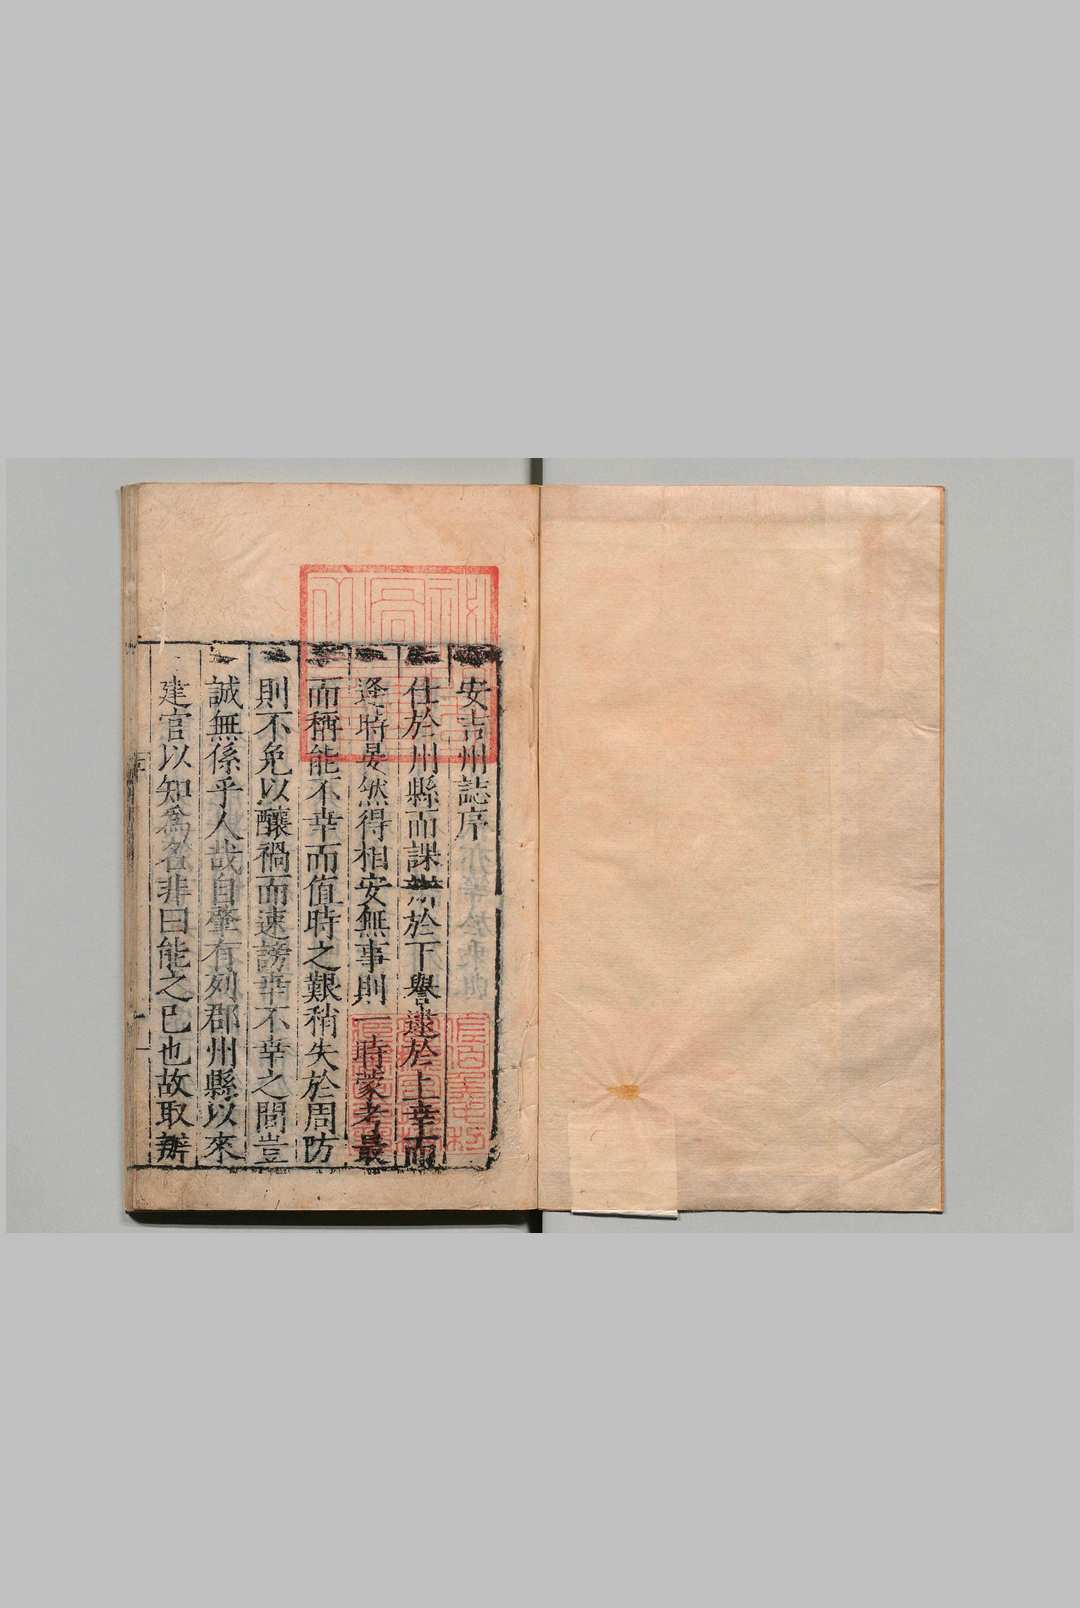 安吉州誌序
仕於州縣而課辦於下譽逮於上幸而
逢時晏然得相安無事則一時蒙考最
而稱能不幸而值時之艱稍失於周防
則不免以釀禍而速謗幸不幸之間豈
誠無係乎人哉自肇有列郡州縣以來
建官以知為名非曰能之已也故取辦